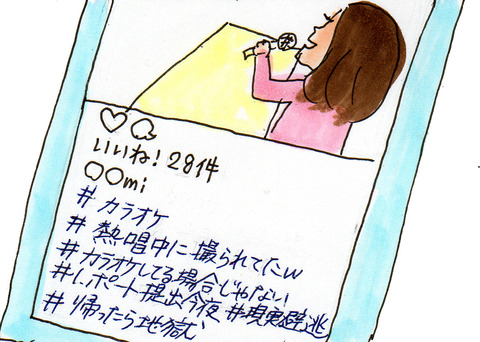 いいね!28件
○○mi
# カラオケ
# 熱唱中に撮られてたw
# カラオケしてる場合じゃない
# レポート提出今夜 #現実逃避
# 帰ったら地獄